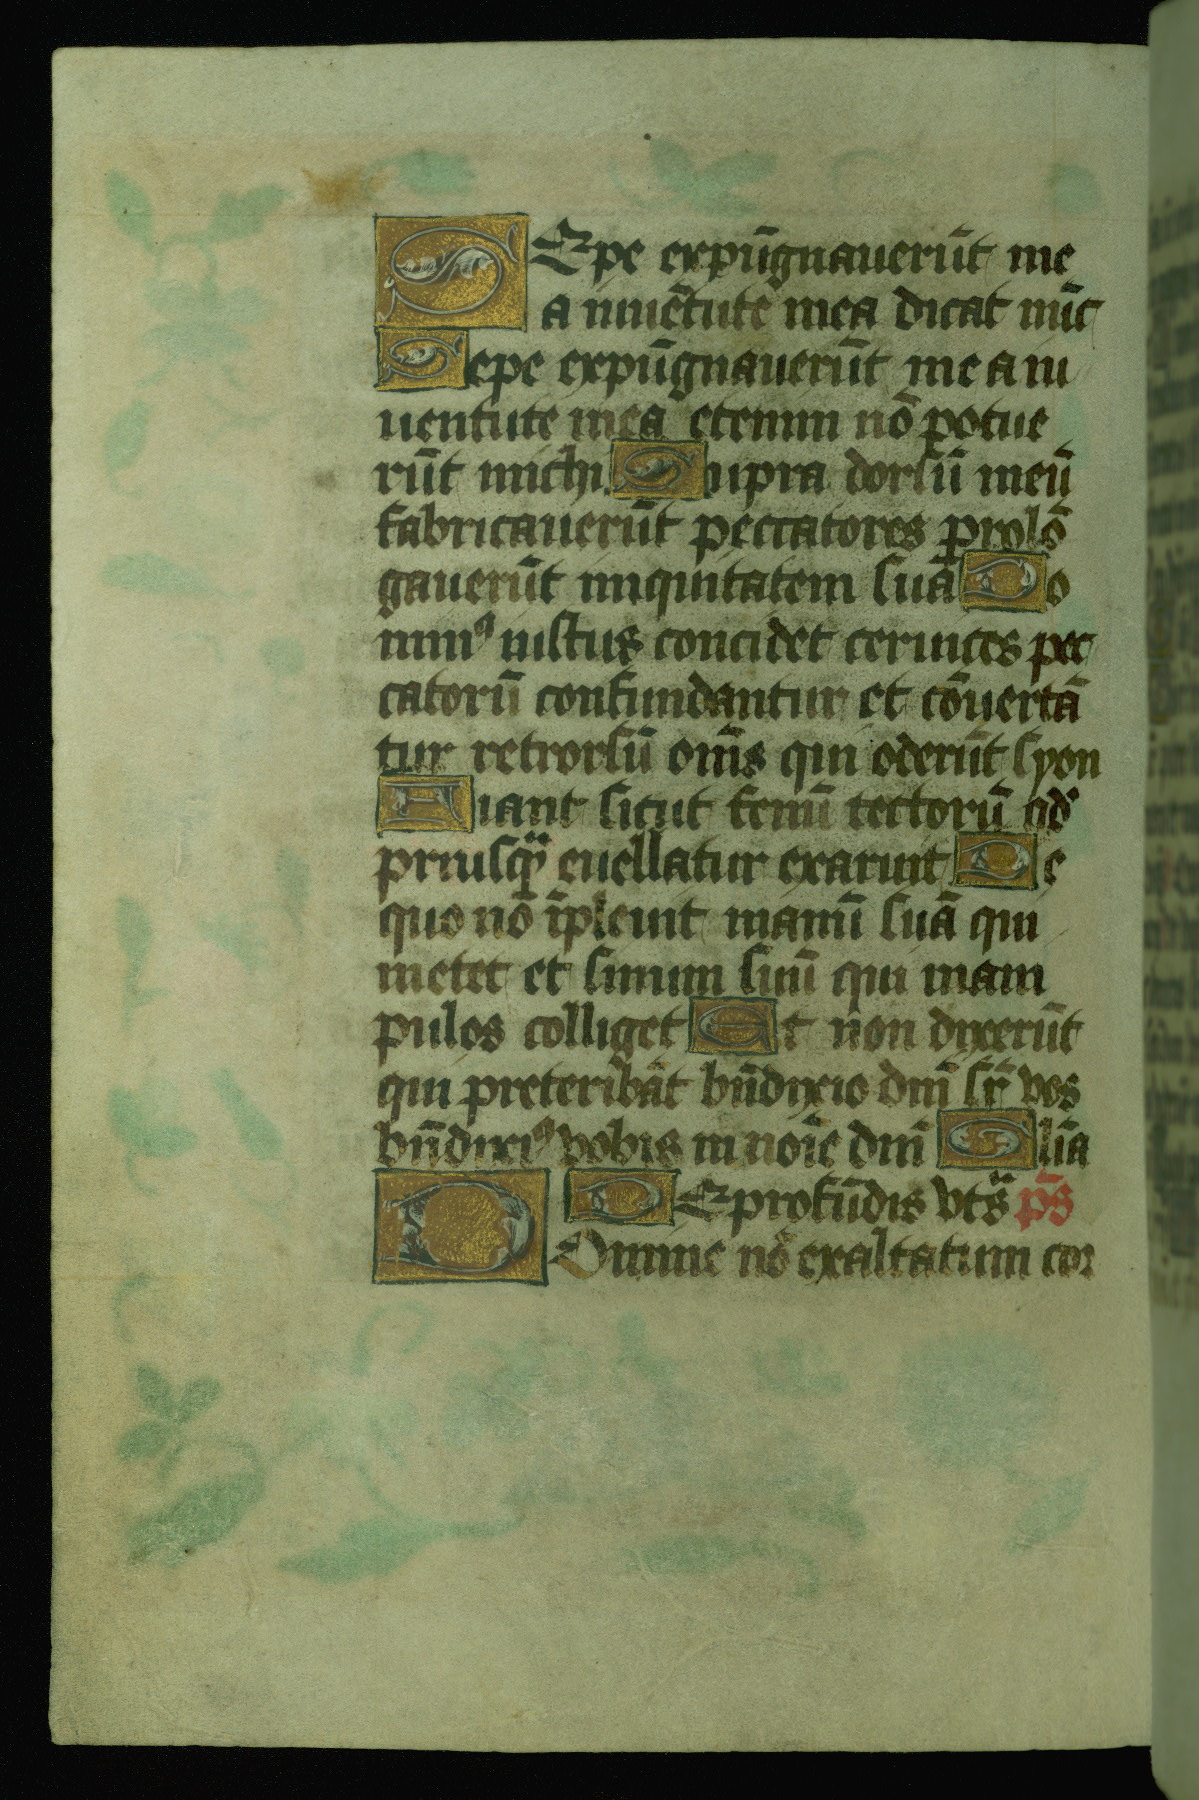 SEpe expūgnauerūt me
a iuuētute mea dicat nūc
Sepe expūgnauerūt me a iu
uentute mea etenim nō potue
rūt michi Supra dorsū meū
fabricauerūt peccatores prolō
gauerūt iniquitatem suā Do
minꝰ iustus concidet ceruices pec
catorū confundantur et cōuertā
tur retrorsū om̄s qui oderūt syon
Fiant sicut fenū tectorū qd̓
priusq̄ȝ euellatur exaruit De
quo nō īpleuit manū suā qui
metet et sinum suū qui mani
pulos colliget Et non dixerūt
qui preteribāt bn̄dixio dn̄i sr̄ vos
bn̄dixiꝰ vobis in noīe dn̄i Glīa
DE profūdis vts̄ ps̄
Domine nō exaltatum cor